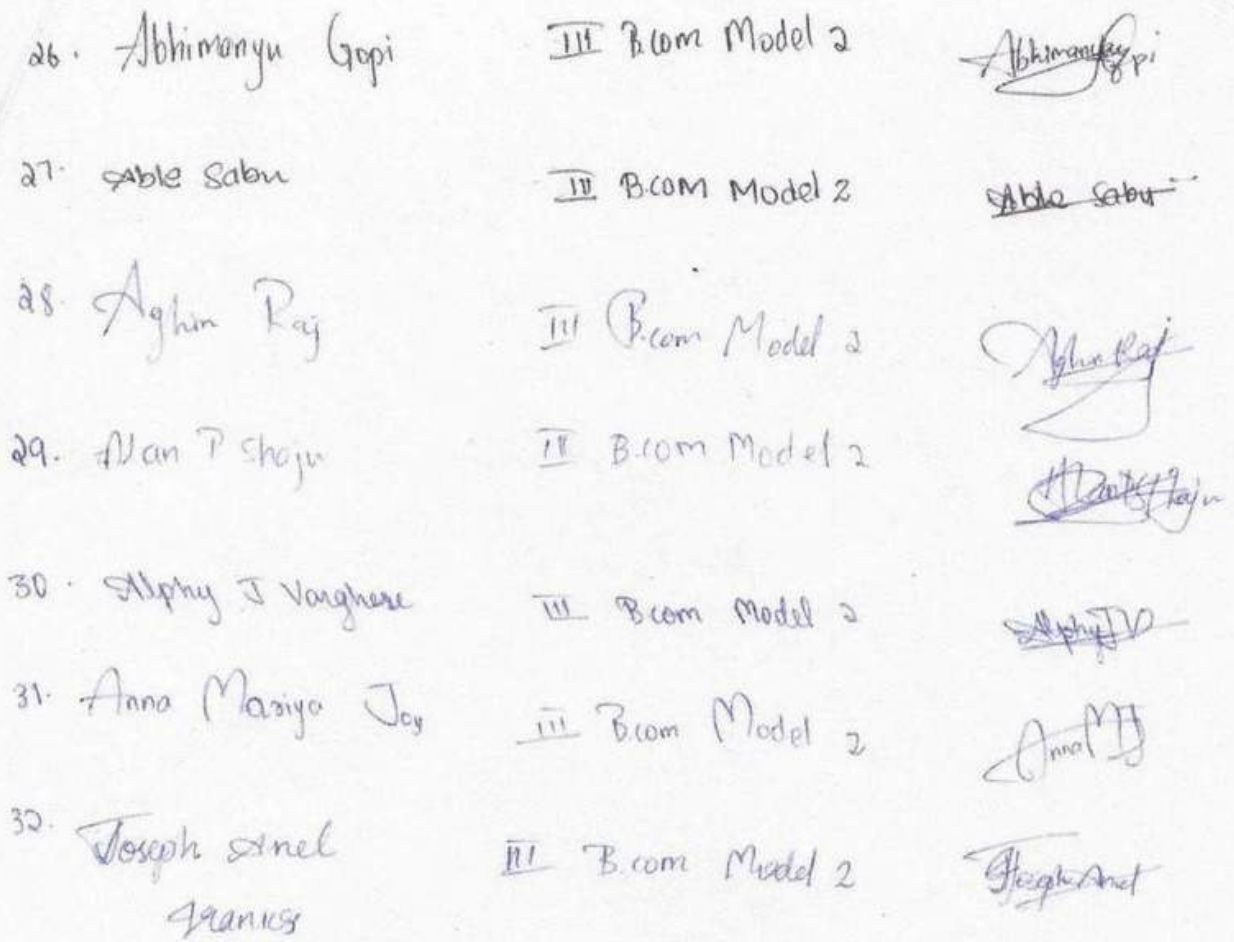 26. Abhimanyu Gopi III B.com Model 2 Abhimanyu Gopi
27. Able Sabu III B.COM Model 2 Able Sabu
28. Aghin Raj III B.com Model 2 Aghin Raj
29. Alan P Shaju III B.com Model 2 Alan P Shaju
30. Alphy J Varghese III B.com Model 2 Alphy J V
31. Anna Mariya Joy III B.com Model 2 Anna M J
32. Joseph Anel III B.com Model 2 Joseph Anel